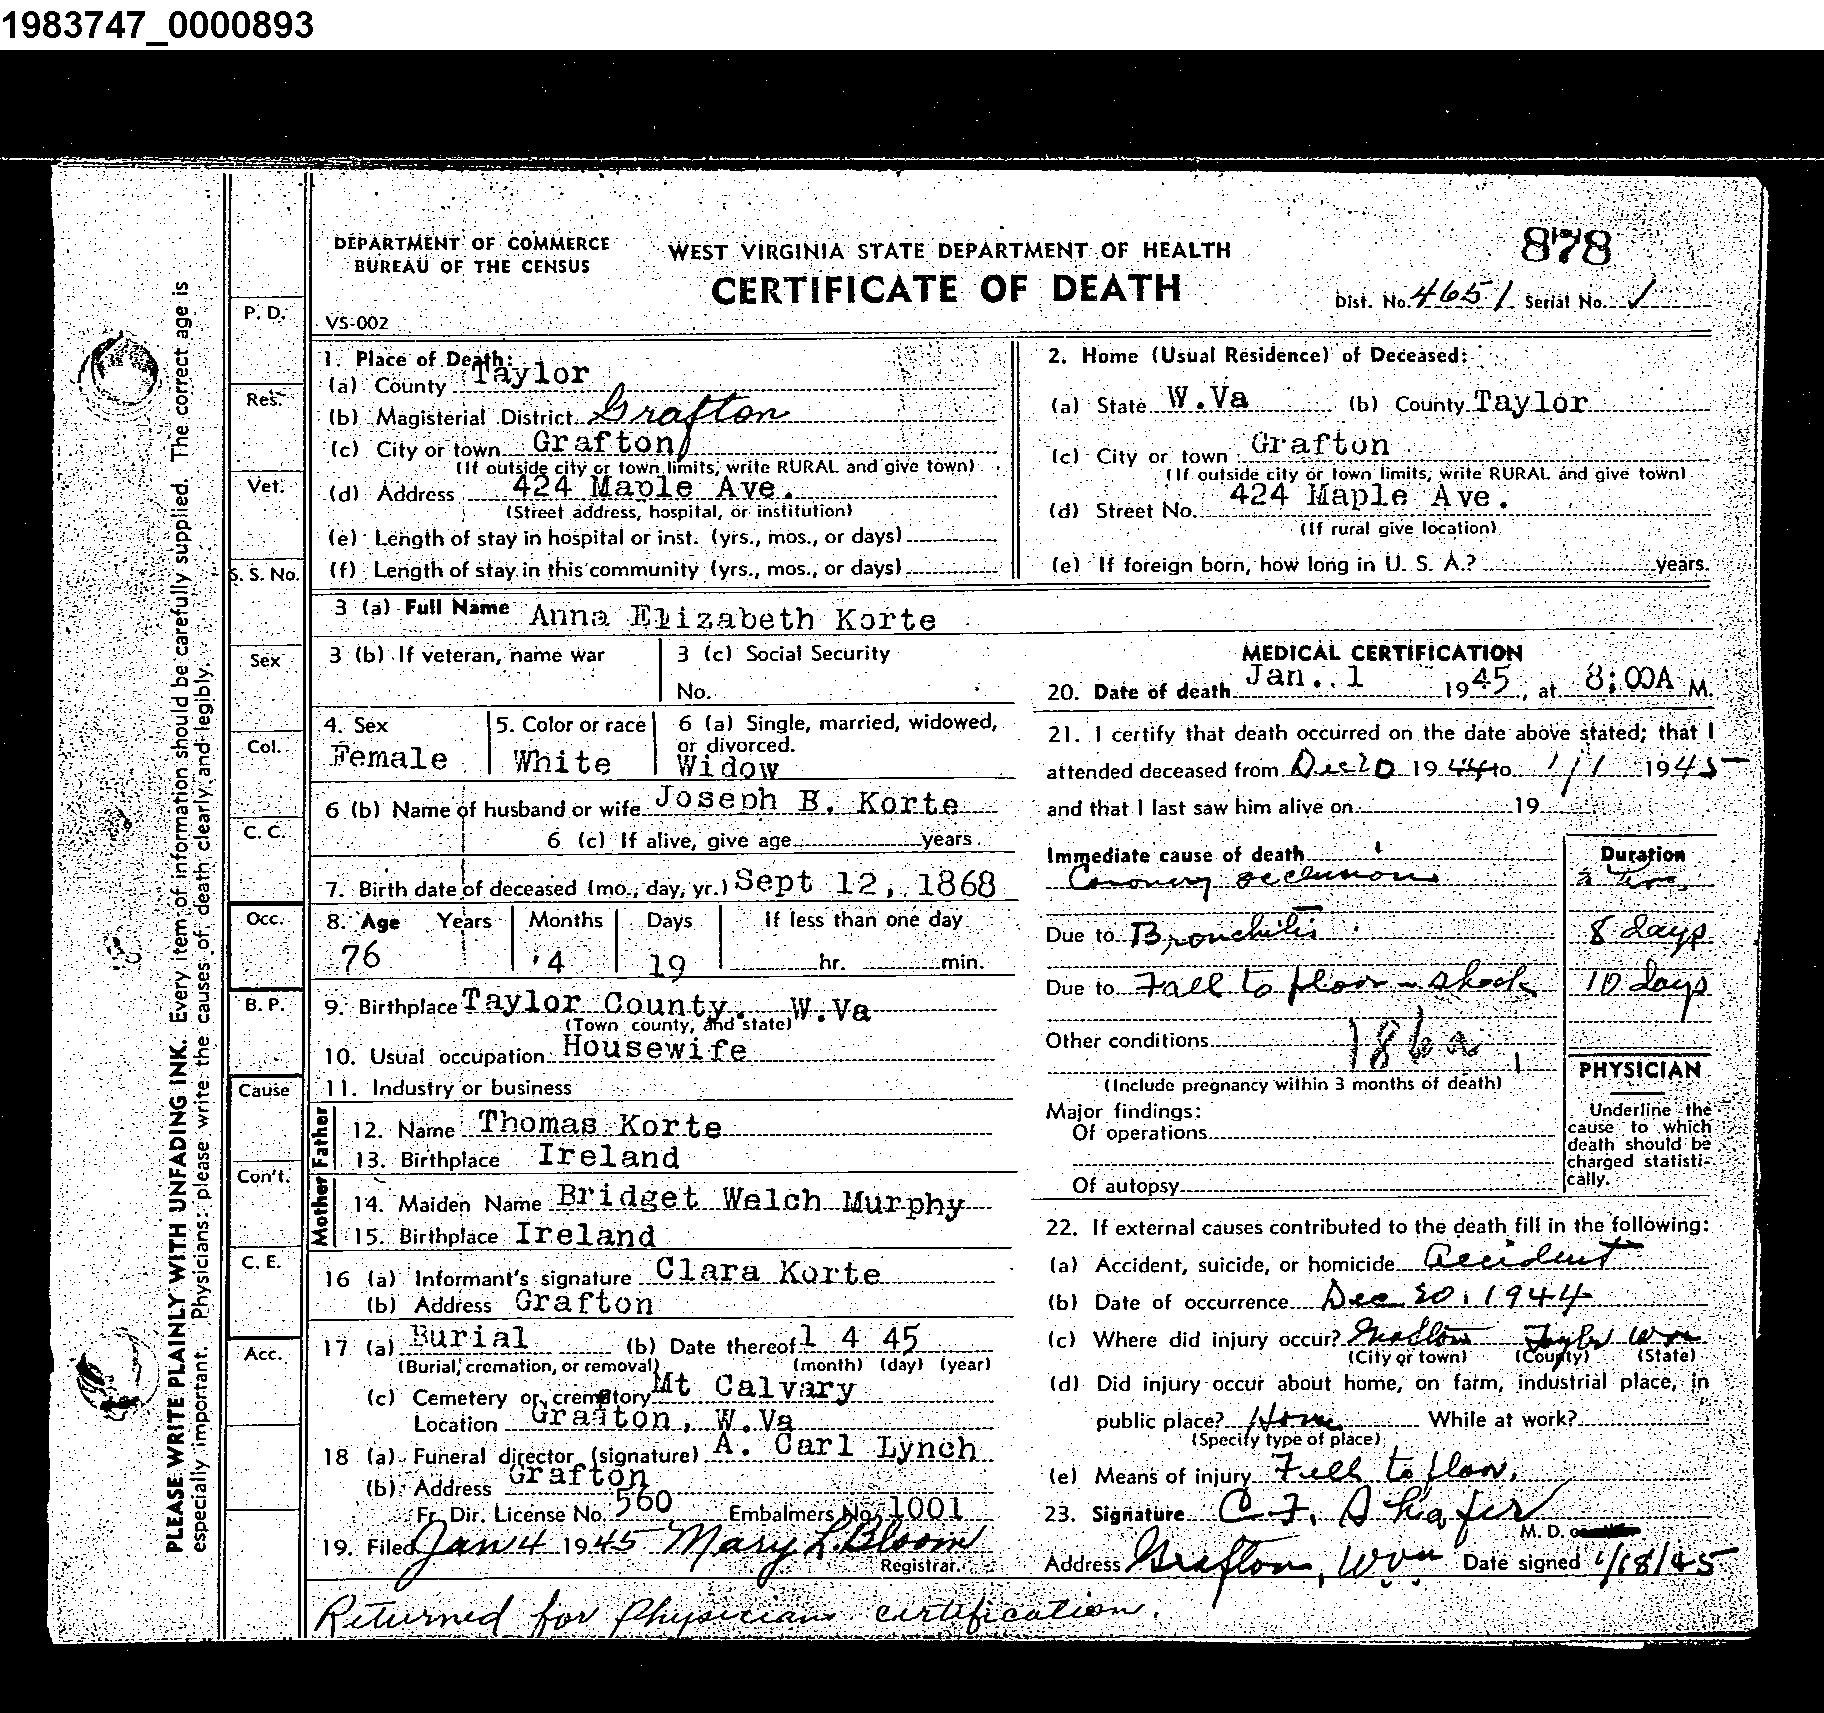 1983747_0000893
PLEASE WRITE PLAINLY WITH UNFADING INK. Every item of information should be carefully supplied. The correct age is
especially important. Physicians: please write the causes of death clearly and legibly.
P. D.
Res.
Vet.
S. S. No.
Sex
Col.
C. C.
Occ.
B. P.
Cause
Con't.
C. E.
Acc.
DEPARTMENT OF COMMERCE
BUREAU OF THE CENSUS
VS-002
WEST VIRGINIA STATE DEPARTMENT OF HEALTH
CERTIFICATE OF DEATH
878
Dist. No. 4651 Serial No. 1
1. Place of Death:
(a) County Taylor
(b) Magisterial District Grafton
(c) City or town Grafton
(If outside city or town limits, write RURAL and give town)
(d) Address 424 Maple Ave.
(Street address, hospital, or institution)
(e) Length of stay in hospital or inst. (yrs., mos., or days)
(f) Length of stay in this community (yrs., mos., or days)
2. Home (Usual Residence) of Deceased:
(a) State W.Va (b) County Taylor
(c) City or town Grafton
(If outside city or town limits, write RURAL and give town)
(d) Street No. 424 Maple Ave.
(If rural give location)
(e) If foreign born, how long in U. S. A.? years.
3 (a) Full Name Anna Elizabeth Korte
3 (b) If veteran, name war
3 (c) Social Security
No.
4. Sex
Female
5. Color or race
White
6 (a) Single, married, widowed,
or divorced.
Widow
6 (b) Name of husband or wife Joseph B. Korte
6 (c) If alive, give age years.
7. Birth date of deceased (mo., day, yr.) Sept 12, 1868
8. Age Years Months Days If less than one day
76 4 19 hr. min.
9. Birthplace Taylor County. W.Va
(Town county, and state)
10. Usual occupation Housewife
11. Industry or business
Father
12. Name Thomas Korte
13. Birthplace Ireland
Mother
14. Maiden Name Bridget Welch Murphy
15. Birthplace Ireland
16 (a) Informant's signature Clara Korte
(b) Address Grafton
17 (a) Burial (b) Date thereof 1 4 45
(Burial, cremation, or removal) (month) (day) (year)
(c) Cemetery or crematory Mt Calvary
Location Grafton, W.Va
18 (a) Funeral director (signature) A. Carl Lynch
(b) Address Grafton
Fr. Dir. License No. 560 Embalmers No. 1001
19. Filed Jan 4 1945 Mary L. Bloom
Registrar.
MEDICAL CERTIFICATION
20. Date of death Jan. 1 1945, at 8:00A M.
21. I certify that death occurred on the date above stated; that I
attended deceased from Dec 20 1944 to 1/1 1945
and that I last saw him alive on 19
Immediate cause of death Duration
Coronary occlusion
Due to Bronchitis 8 days
Due to Fall to floor - shock 10 days
Other conditions 186a 1
(Include pregnancy within 3 months of death)
Major findings:
Of operations
Of autopsy
PHYSICIAN
Underline the
cause to which
death should be
charged statisti-
cally.
22. If external causes contributed to the death fill in the following:
(a) Accident, suicide, or homicide Accident
(b) Date of occurrence Dec 20, 1944
(c) Where did injury occur? Grafton Taylor W Va
(City or town) (County) (State)
(d) Did injury occur about home, on farm, industrial place, in
public place? Home While at work?
(Specify type of place)
(e) Means of injury Fell to floor.
23. Signature C. F. Shafer
M. D.
Address Grafton, W Va Date signed 1/18/45
Returned for Physicians certification.